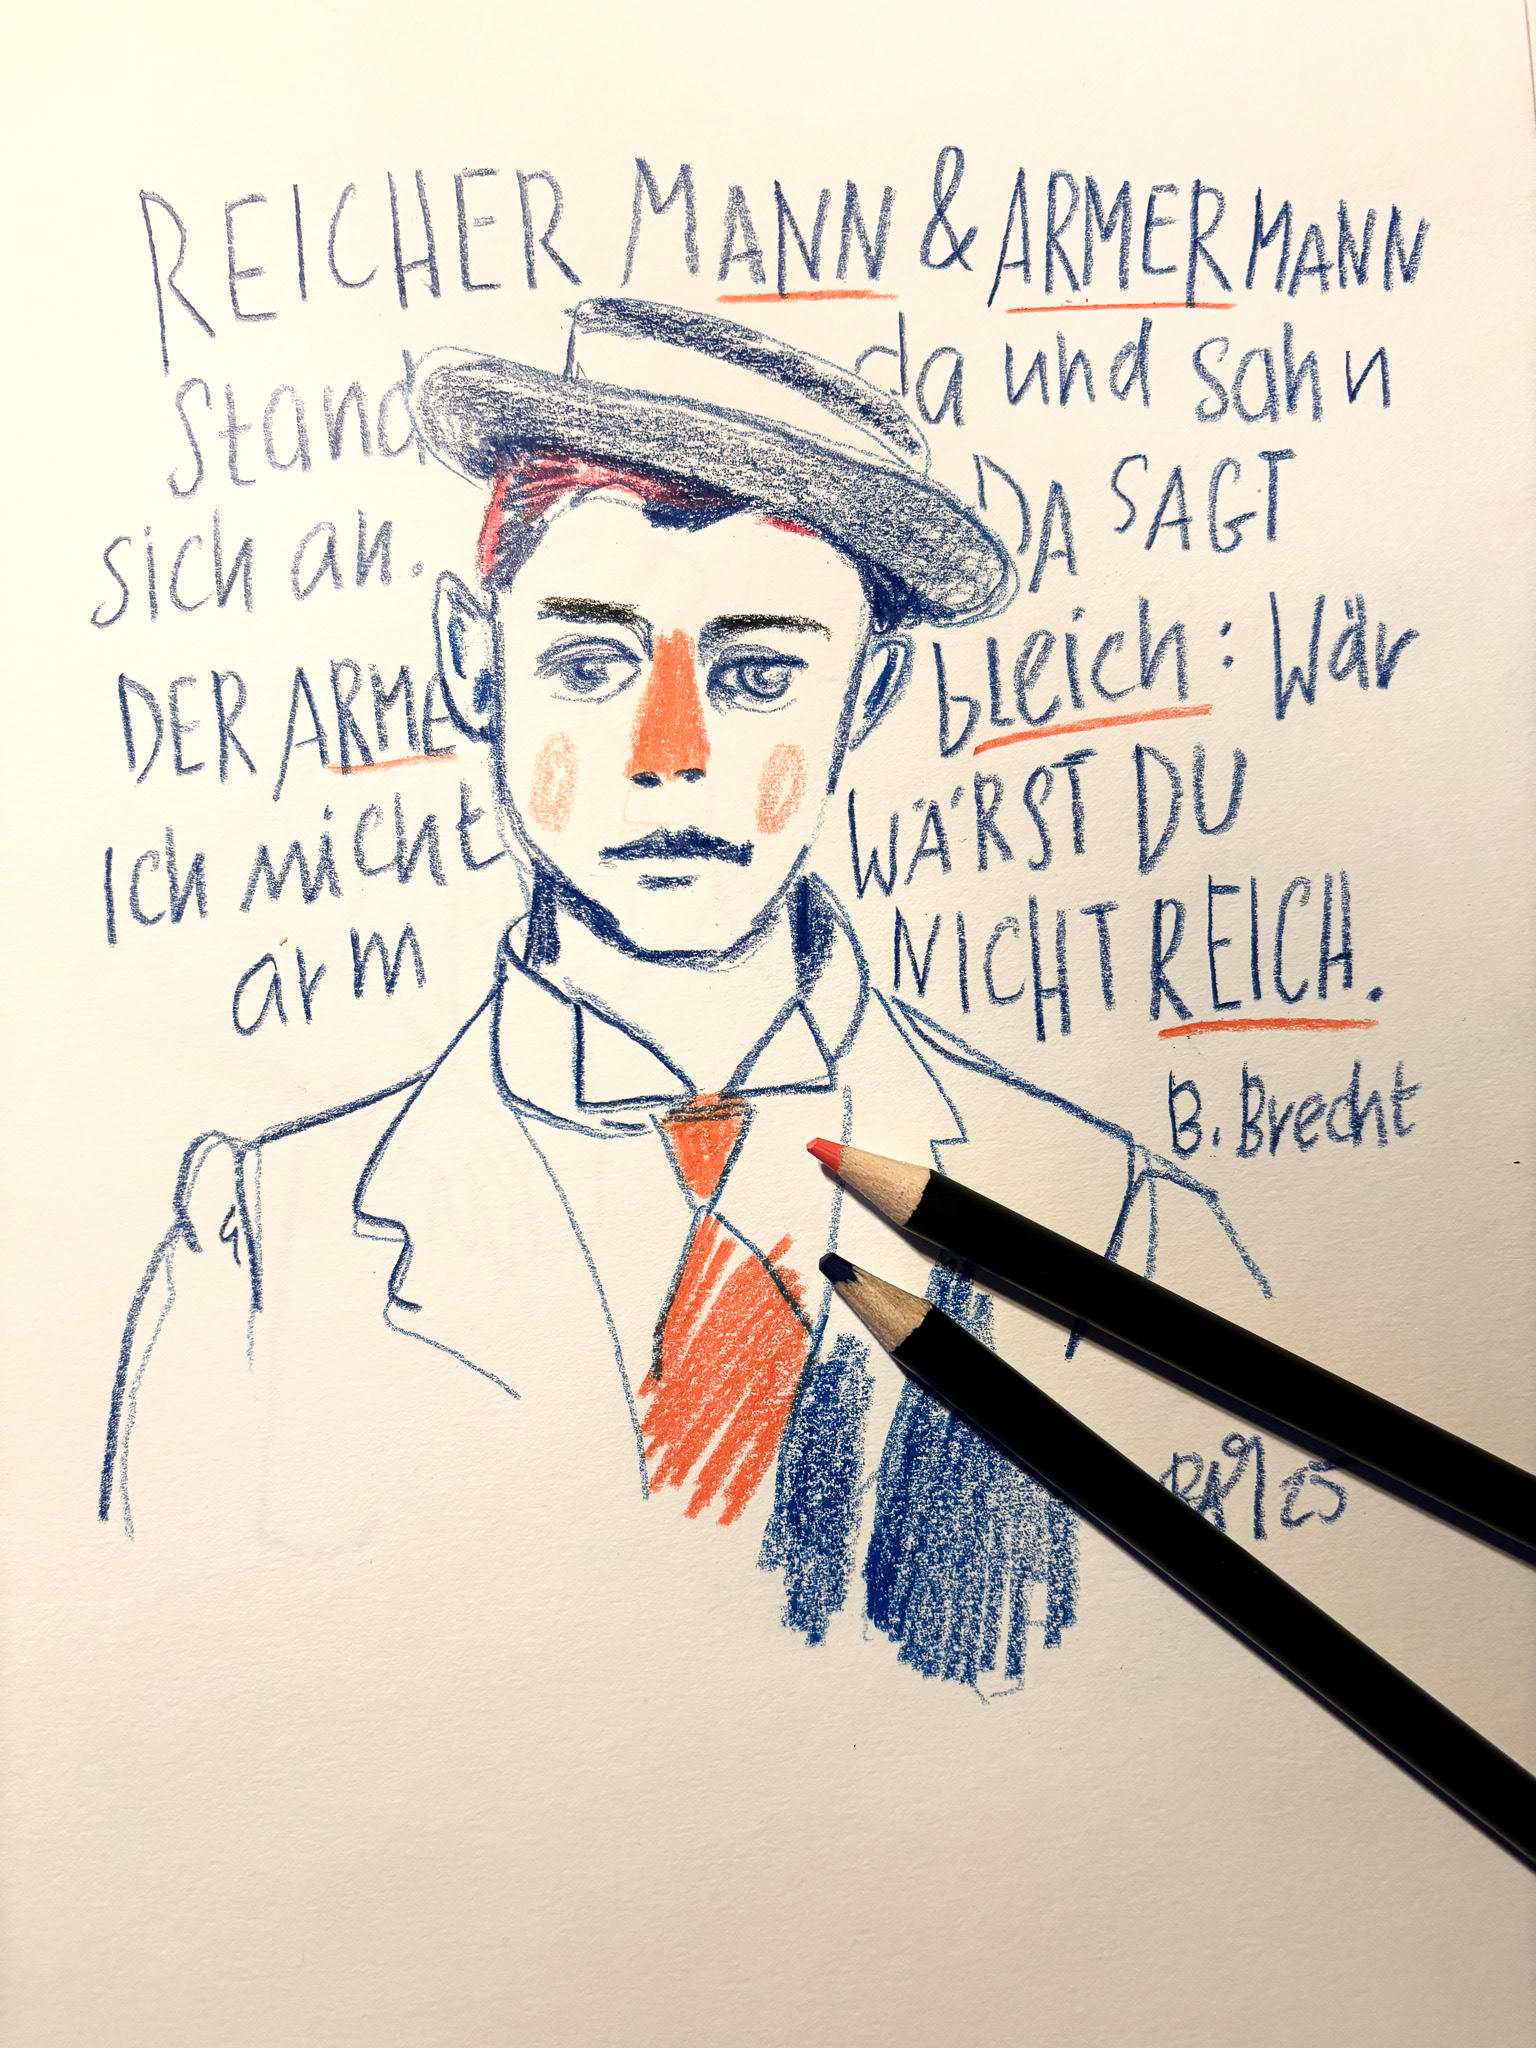 REICHER MANN & ARMER MANN
stand da und sahn
sich an. DA SAGT
DER ARME bleich: Wär
ich nicht arm WÄRST DU
NICHT REICH.
B. Brecht
25